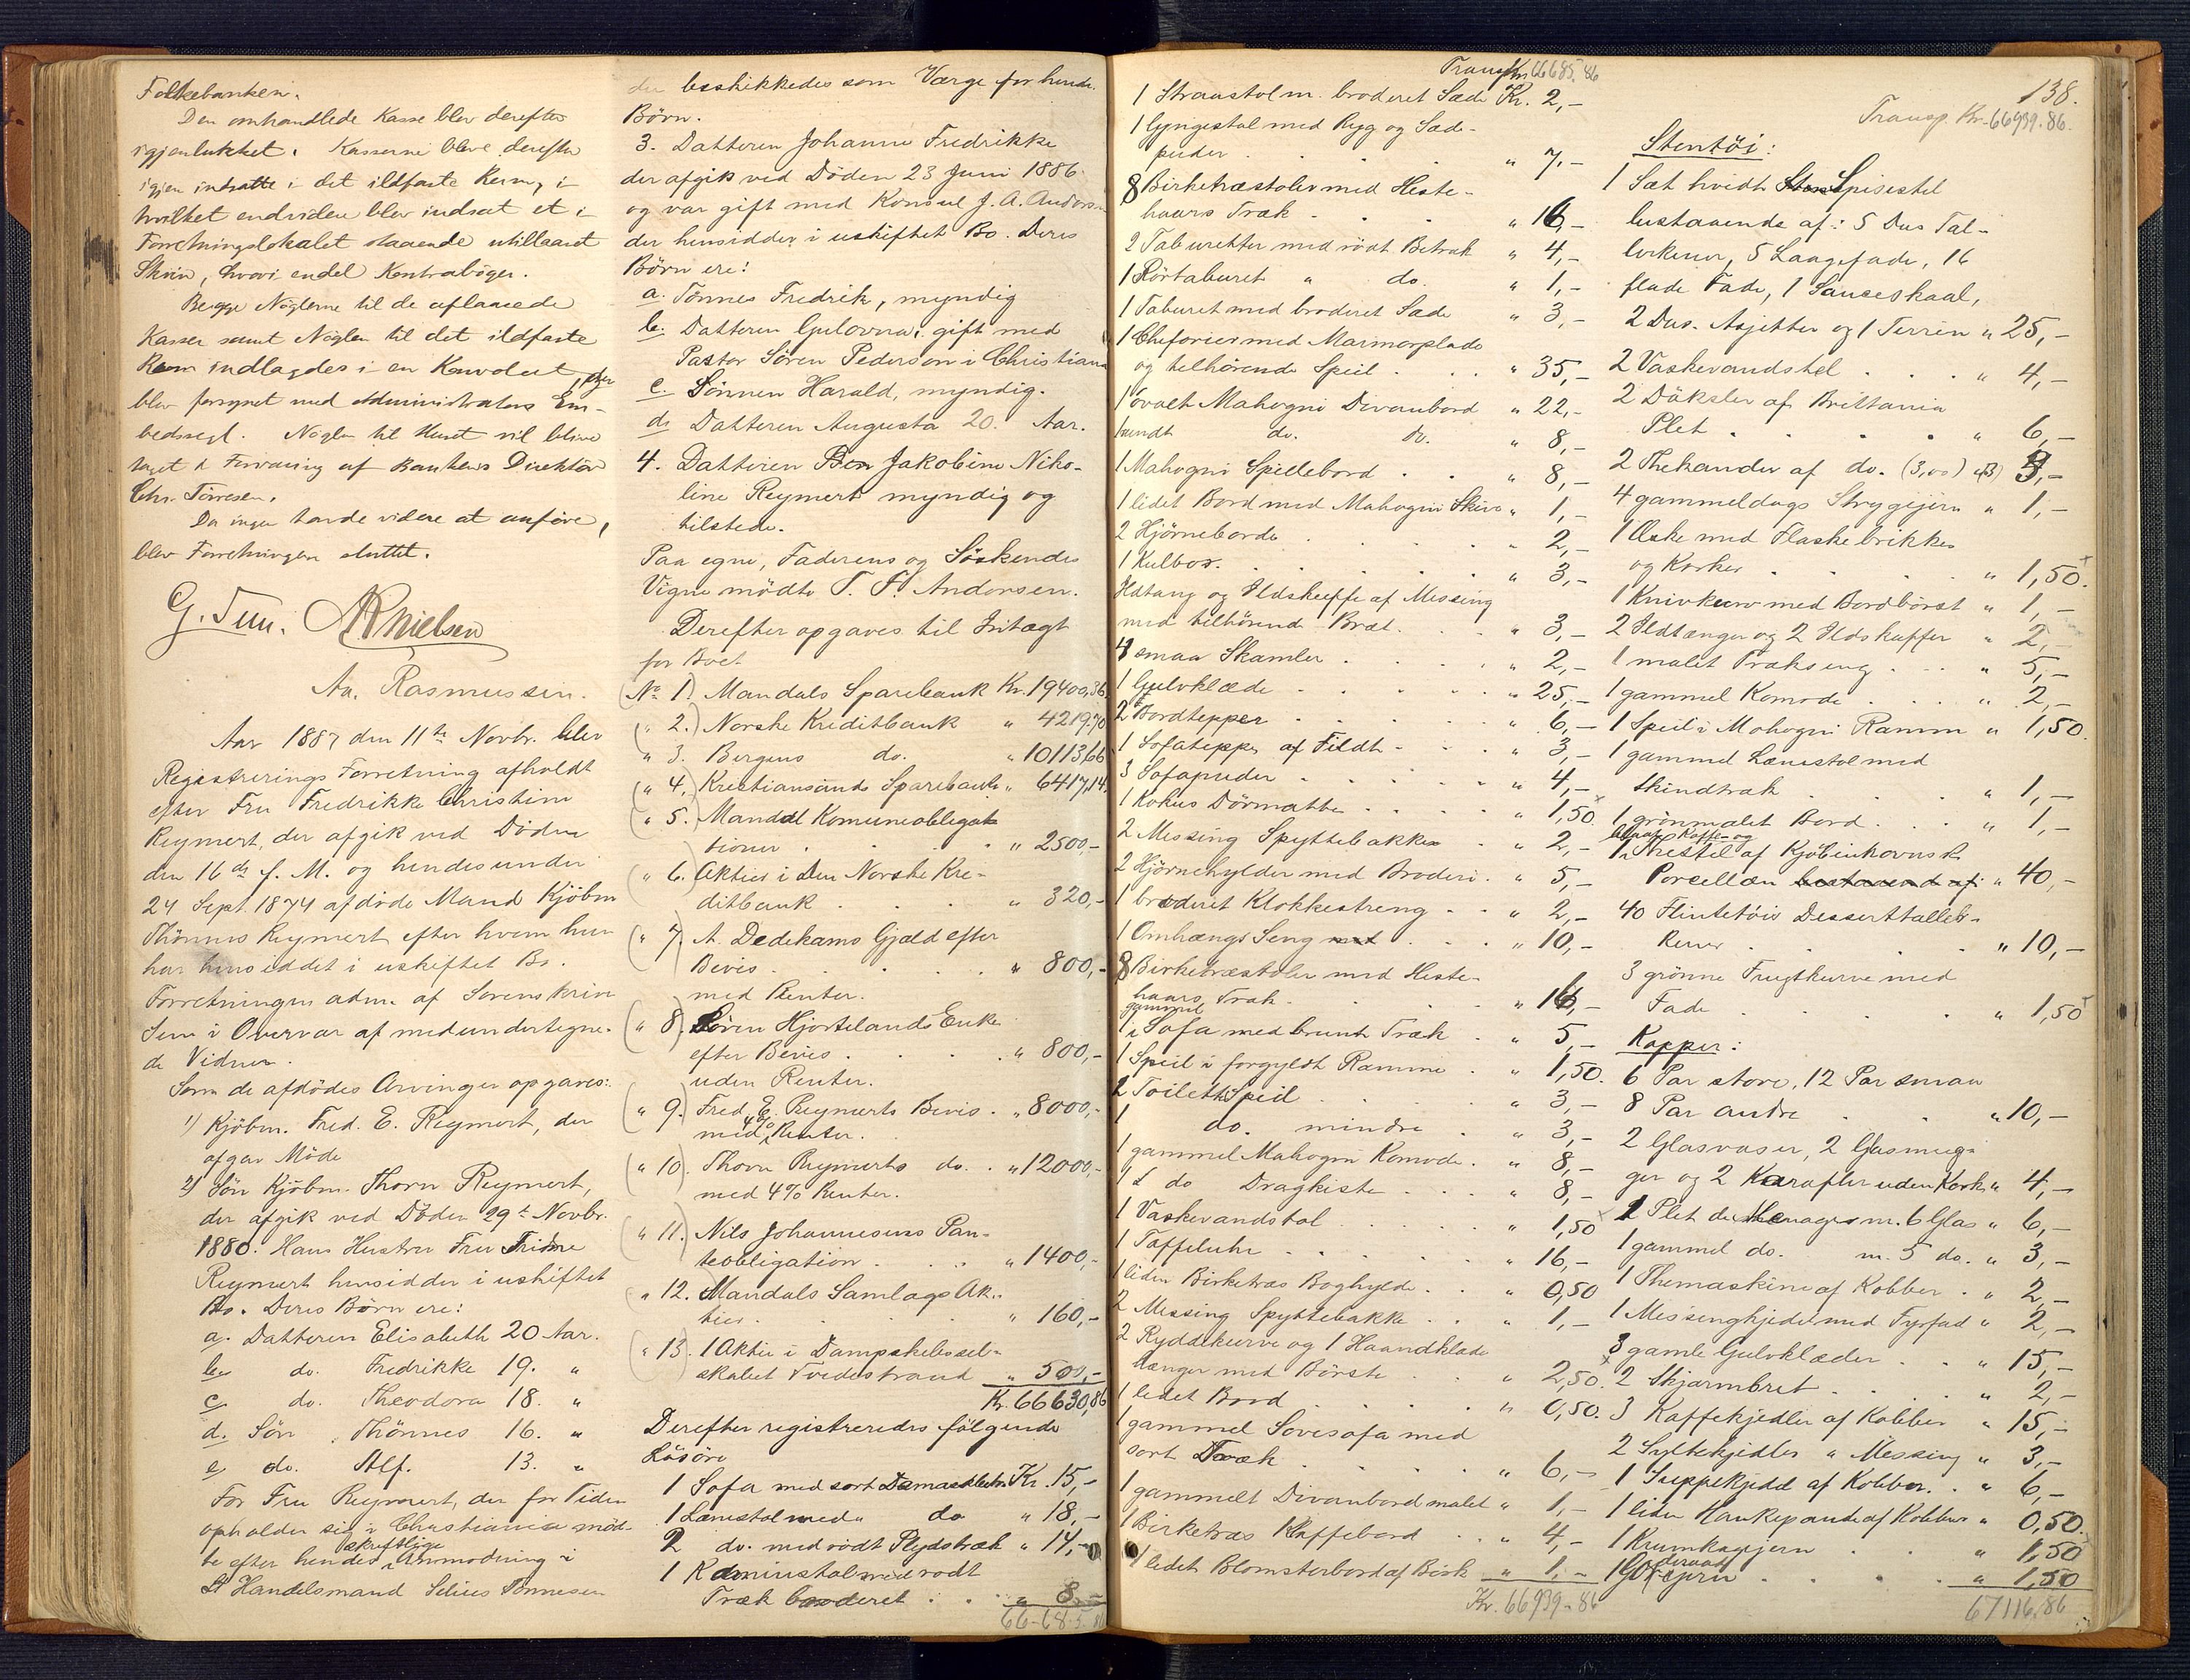 Folkebanken.
Den omhandlede Kasse blev derefter
igjenlukket. Kasserne bleve derefter
igjen indsatte i det ildfaste Rum, i
hvilket endvidere blev indsat et i
Forretningslokalet staaende uaflaaset
Skrin, hvori endel Kontrabøger.
Begge Nøglerne til de aflaasede
Kasser samt Nøglen til det ildfaste
Rum indlagdes i en Konvolut, der
blev forsynet med Administrators Em-
bedssegl. Nøglen til Huset vil blive
taget i Forvaring af Bankens Direktør
Chr. Tørresen.
Da ingen havde videre at anføre,
blev Forretningen sluttet.
G. Tuu. Nielsen
Aa. Rasmussen.
Aar 1887 den 11te Novbr. blev
Registrerings Forretning afholdt
efter Fru Fredrikke Christine
Reymert, der afgik ved Døden
den 16de f. M. og hendes under
24 Sept. 1874 afdøde Mand Kjøbm
Thønnes Reymert efter hvem hun
har hensiddet i uskiftet Bo.
Forretningen adm. af Sorenskrive
ren i Overvær af medundertegne-
de Vidner.
Som de afdødes Arvinger opgaves:
1) Kjøbm. Fred. E. Reymert, der
afgav Møde
2) Søn Kjøbm. Thorn Reymert,
der afgik ved Døden 29de Novbr.
1880. Hans Hustru Fru
Reymert hensidder i uskiftet
Bo. Deres Børn ere:
a. Datteren Elisabeth 20 Aar.
b. do. Fredrikke 19. "
c. do. Theodora 18. "
d. Søn Thönnes 16. "
e. do. Alf. 13. "
For Fru Reymert, der for Tiden
opholder sig i Christiania mød-
te efter hendes skriftlige Anmodning i
St Handelsmand Selius Tønnesen
der beskikkedes som Værge for hendes
Børn.
3. Datteren Johanne Fredrikke
der afgik ved Døden 23 Juni 1886
og var gift med Konsul J. A. Andorsen
der hensidder i uskiftet Bo. Deres
Børn ere:
a. Tönnes Fredrik, myndig
b. Datteren Gulovna, gift med
Pastor Sören Pederson i Christiania
c. Sønnen Harald, myndig.
d. Datteren Augusta 20. Aar.
4. Datteren Jakobine Niko-
line Reymert myndig og
tilstede.
Paa egne, Faderens og Søskendes
Vegne mødte T. F. Andorsen.
Derefter opgaves til Indtægt
for Boet
No 1. Mandals Sparebank Kr. 19400,36
" 2. Norske Kreditbank " 4219,70
" 3. Bergens do. " 10113,66
" 4. Kristiansands Sparebank " 6417,14
" 5. Mandal Komuneobligat
tioner . " 2500,-
" 6. Aktier i Den Norske Kre-
ditbank . " 320,-
" 7. A. Dedekams Gjæld efter
Bevis. " 800,-
med Renter.
" 8. Søren Hjortelands Enke
efter Bevis. " 800,-
uden Renter.
" 9. Fred. E. Reymerts Bevis. " 8000,-
med 4% Renter.
" 10. Thorn Reymerts do. " 12000,-
med 4% Renter.
" 11. Nils Johannesens Pan-
teobligation . " 1400,-
" 12. Mandals Samlags Ak-
tier. " 160,-
" 13. 1 Aktie i Dampskibssel-
skabet Tvedestrand " 500,-
Kr. 66630,86
Derefter registreredes følgende
Løsøre
1 Sofa med sort Damastbetr. Kr. 15,-
1 Lænestol med " do " 18,-
2 do. med rødt Plydstræk " 14,-
1 Kaminstol med rødt
Træk broderet . " 8,-
66685.86
Transp. Kr. 66685.86
1 Straastol m. broderet Sæde Kr. 2,-
1 Gyngestol med Ryg og Sæde-
puder " 7,-
8 Birketræstoler med Heste-
haars Træk " 16,-
2 Taburetter med rødt Betræk " 4,-
1 Rörtaburet " do. " 1,-
1 Taburet med broderet Sæde " 3,-
1 Cheforier med Marmorplade
og tilhørende Speil . " 35,-
1 ovalt Mahogni Divanbord " 22,-
1 rundt do. do. " 8,-
1 Mahogni Spillebord . " 8,-
1 lidet Bord med Mahogni Skive " 1,-
2 Hjørneborde . " 2,-
1 Kulbox. " 3,-
Ildtang og Ildskuffe af Messing
med tilhørende Bræt. " 3,-
4 smaa Skamler . " 2,-
1 Gulvklæde . " 25,-
2 Bordtepper . " 6,-
1 Sofateppe af Fildt - " 3,-
3 Sofapuder . " 4,-
1 Kokus Dörmatte . " 1,50
2 Messing Spyttebakker " 2,-
2 Hjørnehylder med Broderi. " 5,-
1 broderet Klokkestreng . " 2,-
1 Omhængs Seng . " 10,-
8 Birketræstoler med Heste-
haars Træk. " 16,-
1 gammel Sofa med brunt Træk " 5,-
1 Speil i forgyldt Ramme " 1,50.
2 Toilet Speil " 3,-
1 do. mindre " 3,-
1 gammel Mahogni Komode. " 8,-
1 do Dragkiste " 8,-
1 Vaskevandstol " 1,50
1 Taffeluhr . " 16,-
1 liden Birketræs Boghylde " 0,50
2 Messing Spyttebakke " 1,-
2 Ryddekurve og 1 Haandklæde
hænger med Börste " 2,50.
1 lidet Bord " 0,50.
1 gammel Sovesofa med
sort Træk " 6,-
1 gammelt Divanbord malet " 1,-
1 Birketræs Kaffebord " 4,-
1 lidet Blomsterbord af Birk " 1,-
Kr. 66939-86
138.
Transp. Kr. 66939.86.
Stentöi:
1 Sæt hvidt Spisestel
bestaaende af: 5 Dus Tal-
lerkener, 5 Laagefade, 16
flade Fade, 1 Sauceskaal,
2 Dus. Asjetter og 1 Terrin " 25,-
2 Vaskevandstel . " 4,-
2 Däksler af Brittania
Plet . " 6,-
2 Thekander af do. (3,00) 3,-
4 gammeldags Strygejern " 1,-
1 Æske med Flaskebrikker
og Korker " 1,50.
1 Knivkurv med Bordbörst " 1,-
2 Ildtænger og 2 Ildskuffer " 2,-
1 malet Træk seng . " 5,-
1 gammel Komode . " 2,-
1 Speil i Mahogni Ramme " 1,50
1 gammel Lænestol med
Skindtræk . " 1,-
1 grönmalet Bord. " 1,-
1 Kaffe- og Thestel af Kjöbenhavnsk
Porcellæn bestaaende af " 40,-
40 Flintetöis Desserttaller-
kener . " 10,-
3 grönne Frugtkurve med
Fade " 1,50
Kopper:
6 Par store, 12 Par smaa
8 Par andre " 10,-
2 Glasvaser, 2 Glasmug-
ger og 2 Karafler uden Kork " 4,-
1 Plet de Menage m. 6 Glas " 6,-
1 gammel do. m. 5 do. " 3,-
1 Themaskine af Kobber " 2,-
1 Messingkjedel med Fyrfad " 2,-
3 gamle Gulvklæder . " 15,-
2 Skjærmbret " 2,-
3 Kaffekjedler af Kobber " 15,-
2 Syltekjedler " Messing " 3,-
1 Suppekjedel af Kobber. " 6,-
1 liden Hankepande af Kobber " 0,50.
1 Krumkagejern " 1,50
1 Goderaadjern . " 1,50
67116,86